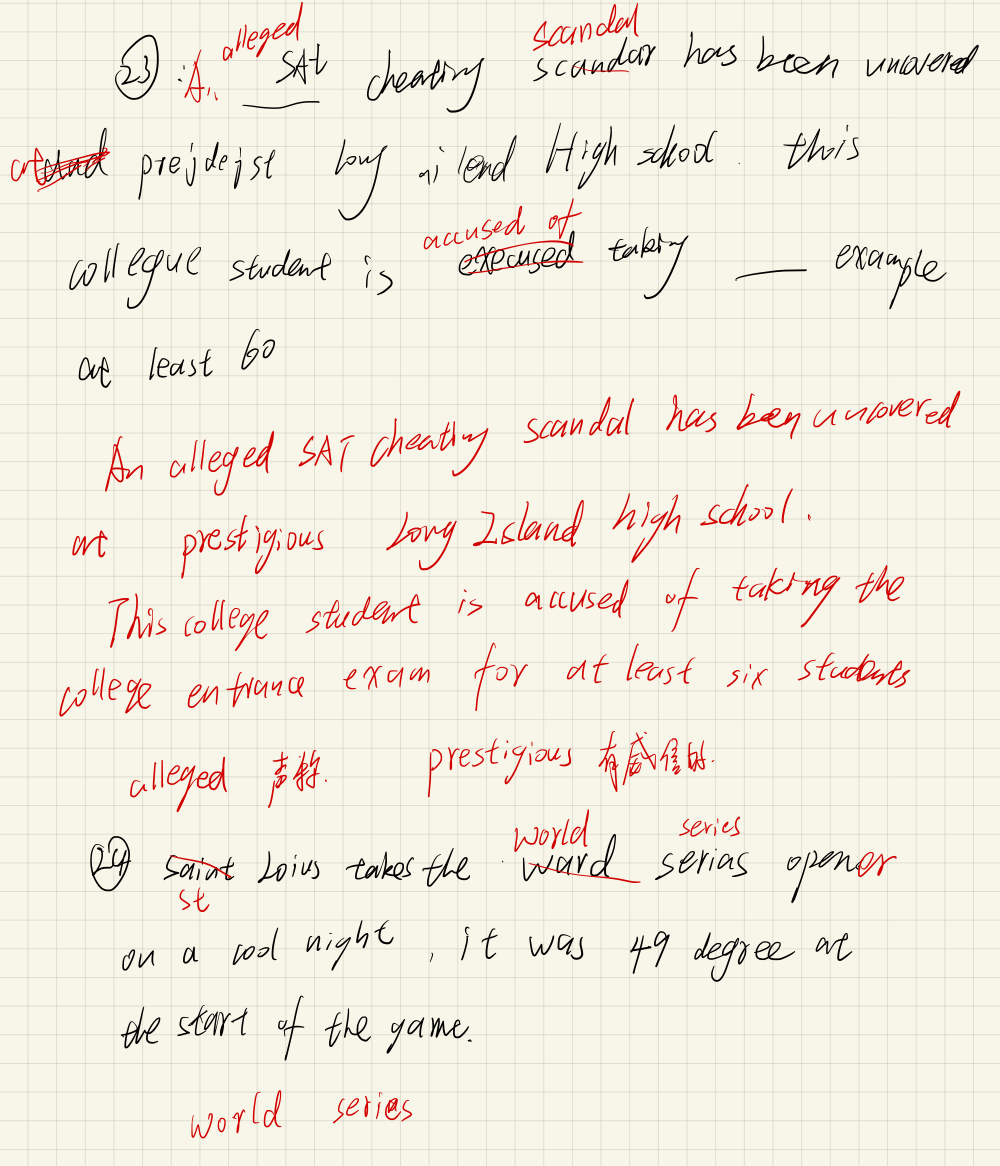 alleged scandal
23 : An SAt cheating scandar has been uncovered
at and prejdejst long ailend High school. this
accused of
collegue student is execused taking ___ example
at least 60
An alleged SAT cheating scandal has been uncovered
at prestigious Long Island high school.
This college student is accused of taking the
college entrance exam for at least six students
alleged 声称. prestigious 有威信的.
world series
24 saint Loius takes the ward serias opener
st
on a cool night, it was 49 degree at
the start of the game.
world series